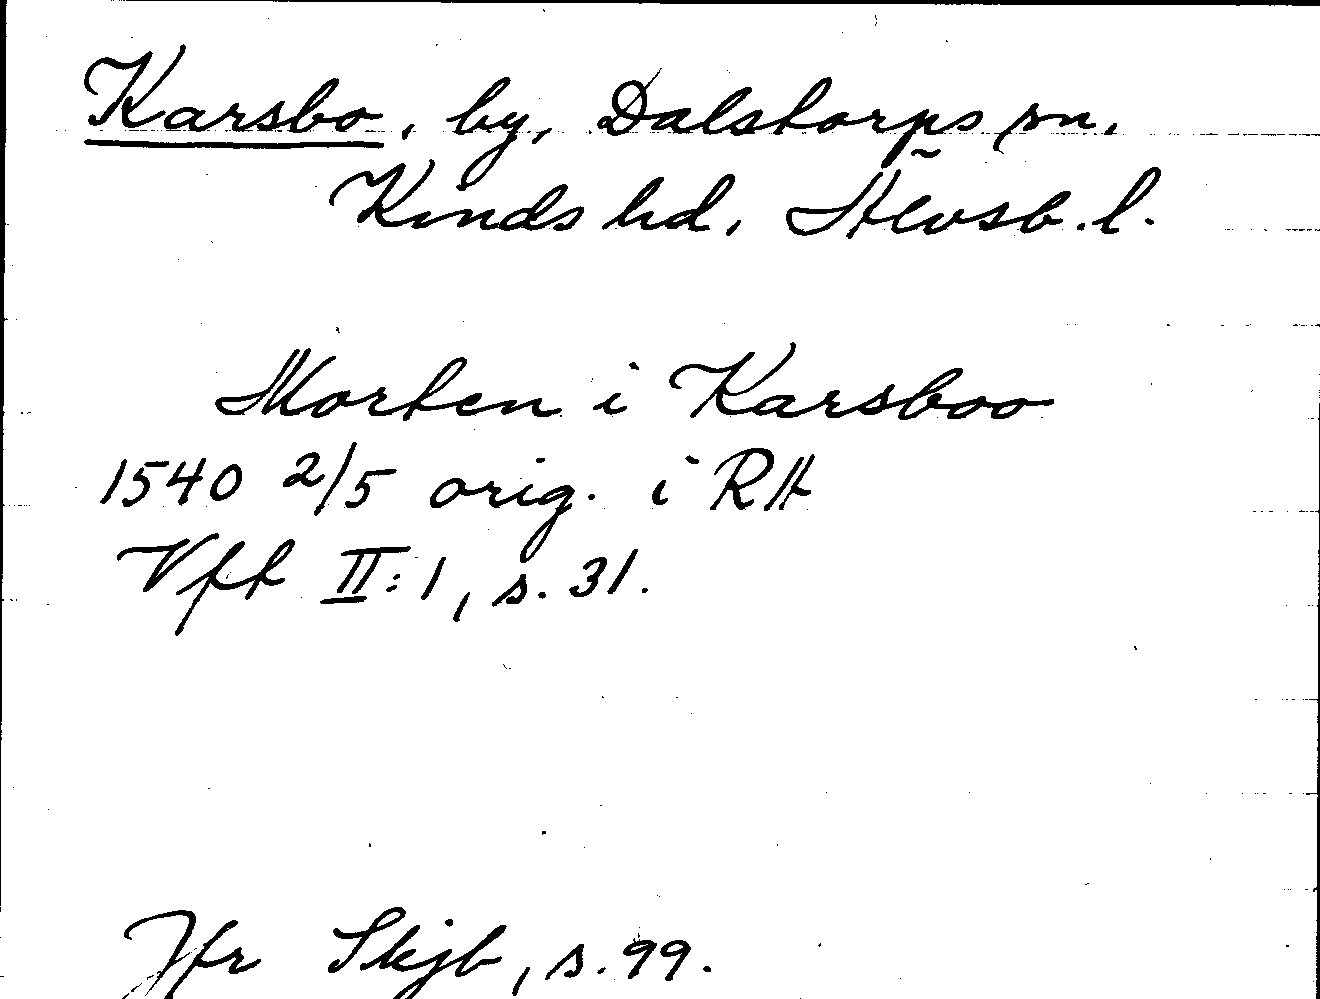 Karsbo, by, Dalstorps sn,
Kinds hd, Älvsb. l.
Morten i Karsboo
1540 2/5 orig. i RA
Vff II:1, s. 31.
Jfr Skjb, s. 99.